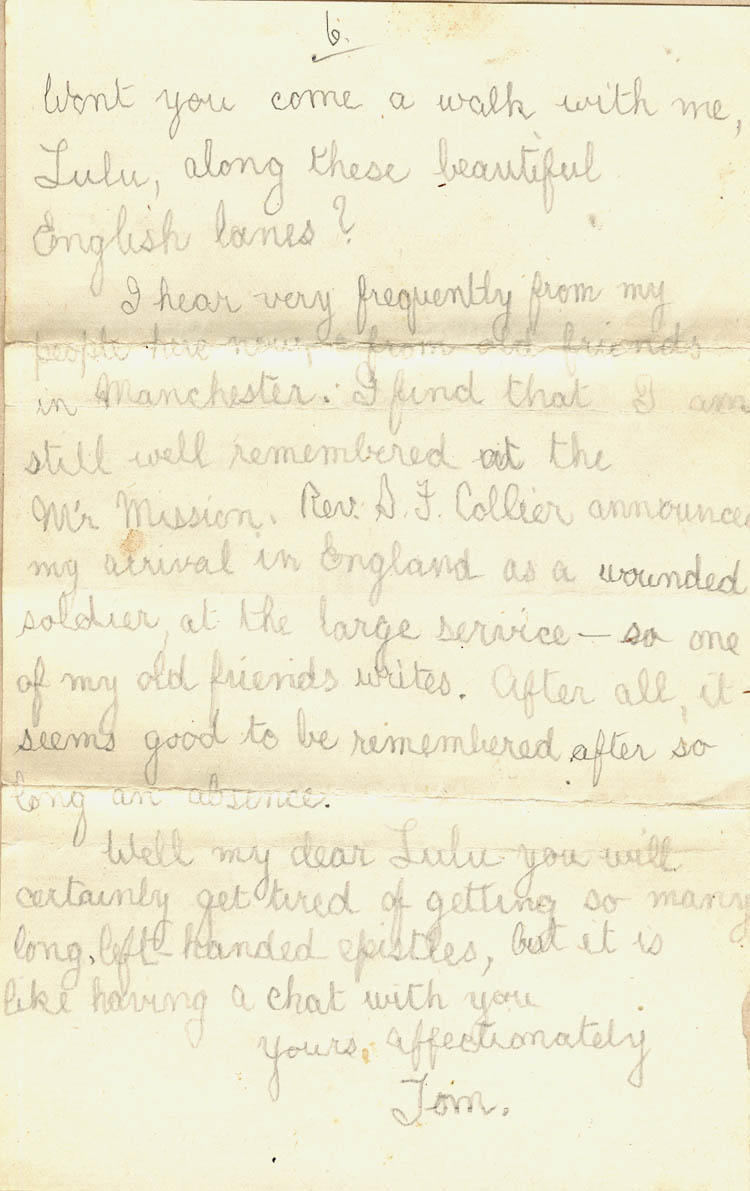 6.
Wont you come a walk with me,
Lulu, along these beautiful
English lanes?
I hear very frequently from my
people here now, & from old friends
in Manchester. I find that I am
still well remembered at the
M'r Mission. Rev. S. F. Collier announced
my arrival in England as a wounded
soldier, at the large service — so one
of my old friends writes. After all, it
seems good to be remembered after so
long an absence.
Well my dear Lulu you will
certainly get tired of getting so many
long, left-handed epistles, but it is
like having a chat with you
Yours affectionately
Tom.